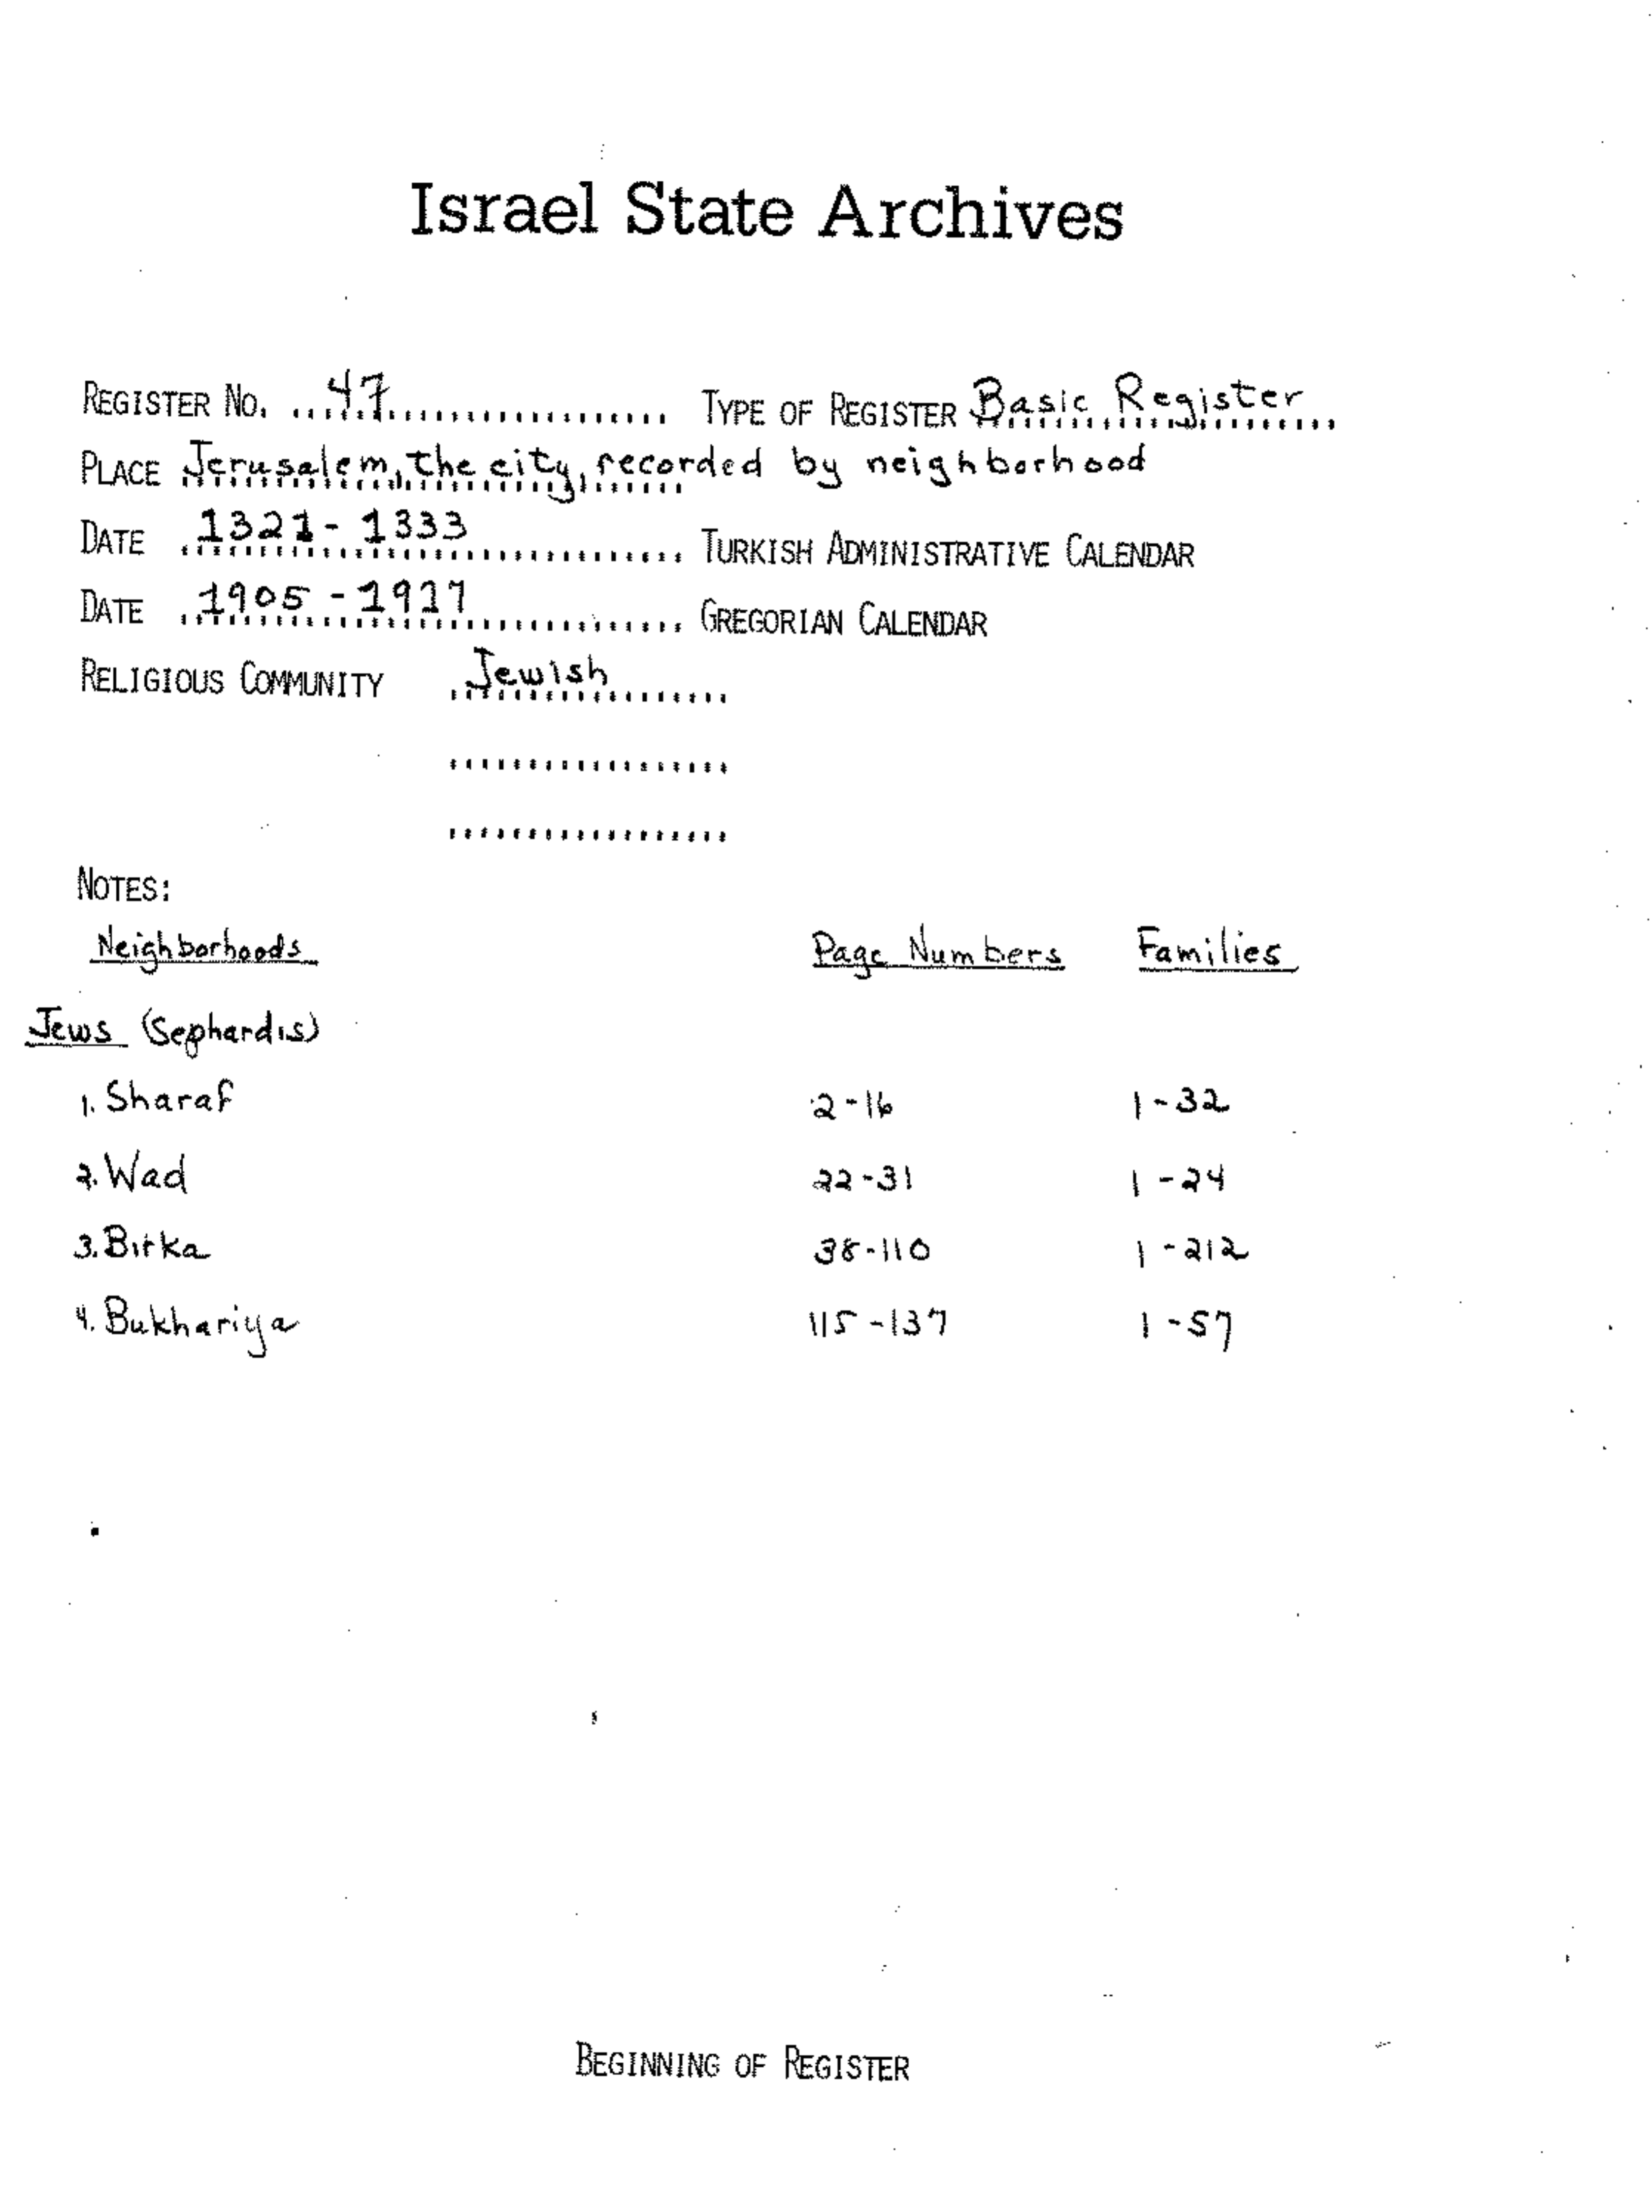 Israel State Archives
REGISTER NO. 47 TYPE OF REGISTER Basic Register
PLACE Jerusalem, the city, recorded by neighborhood
DATE 1321 - 1333 TURKISH ADMINISTRATIVE CALENDAR
DATE 1905 - 1917 GREGORIAN CALENDAR
RELIGIOUS COMMUNITY Jewish
NOTES:
Neighborhoods Page Numbers Families
Jews (Sephardis)
1. Sharaf 2-16 1-32
2. Wad 22-31 1-24
3. Birka 38-110 1-212
4. Bukhariya 115-137 1-57
BEGINNING OF REGISTER